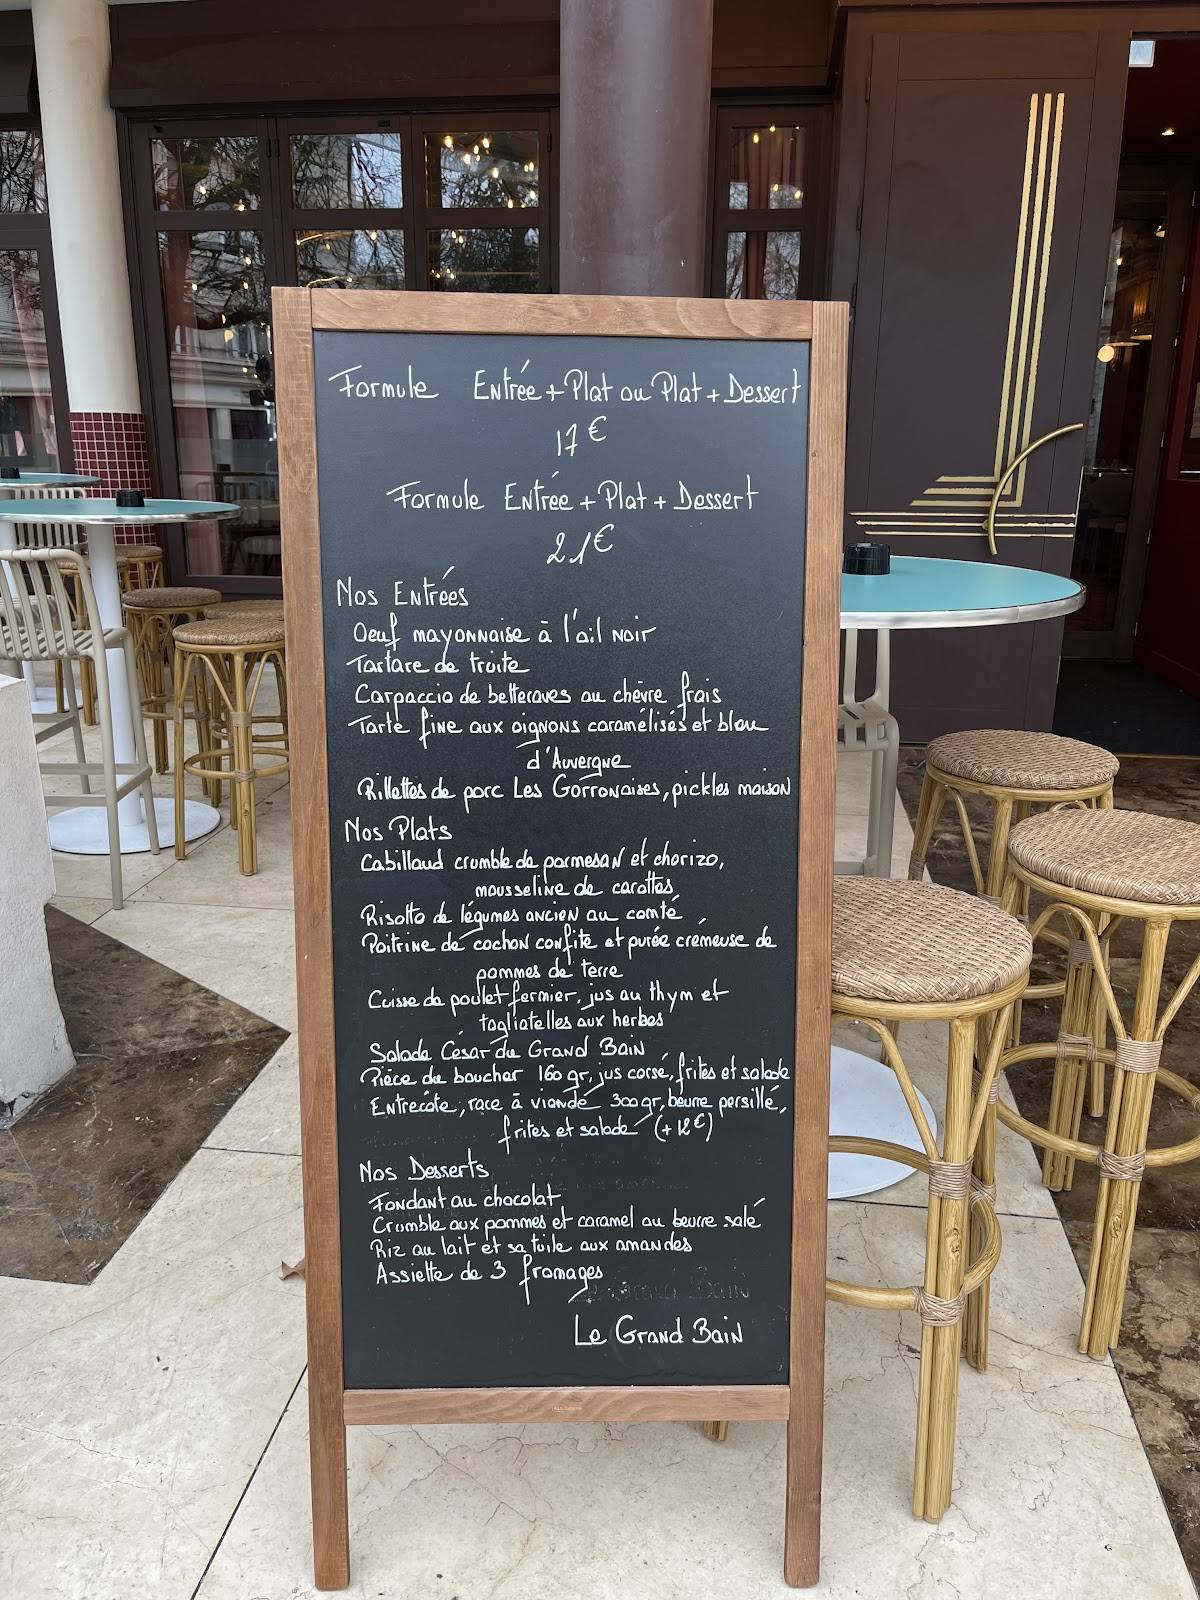 Formule Entrée + Plat ou Plat + Dessert
17 €
Formule Entrée + Plat + Dessert
21 €
Nos Entrées
Oeuf mayonnaise à l'ail noir
Tartare de truite
Carpaccio de betteraves au chèvre frais
Tarte fine aux oignons caramélisés et bleu
d'Auvergne
Rillettes de porc Les Gorronaises, pickles maison
Nos Plats
Cabillaud crumble de parmesan et chorizo,
mousseline de carottes
Risotto de légumes ancien au comté
Poitrine de cochon confite et purée crémeuse de
pommes de terre
Cuisse de poulet fermier, jus au thym et
tagliatelles aux herbes
Salade César du Grand Bain
Pièce du boucher 160 gr, jus corsé, frites et salade
Entrecôte, race à viande 300 gr, beurre persillé,
frites et salade (+12€)
Nos Desserts
Fondant au chocolat
Crumble aux pommes et caramel au beurre salé
Riz au lait et sa tuile aux amandes
Assiette de 3 fromages
Le Grand Bain